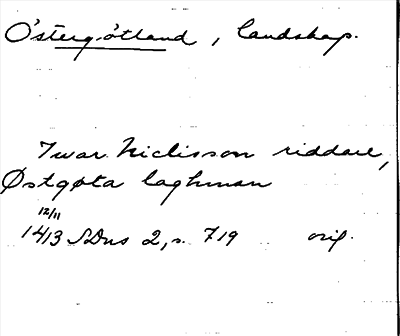 Östergötland, landskap.
Iwar Niclisson riddare,
Østgøta laghman
12/11
1413 SDns 2, s. 719 orig.